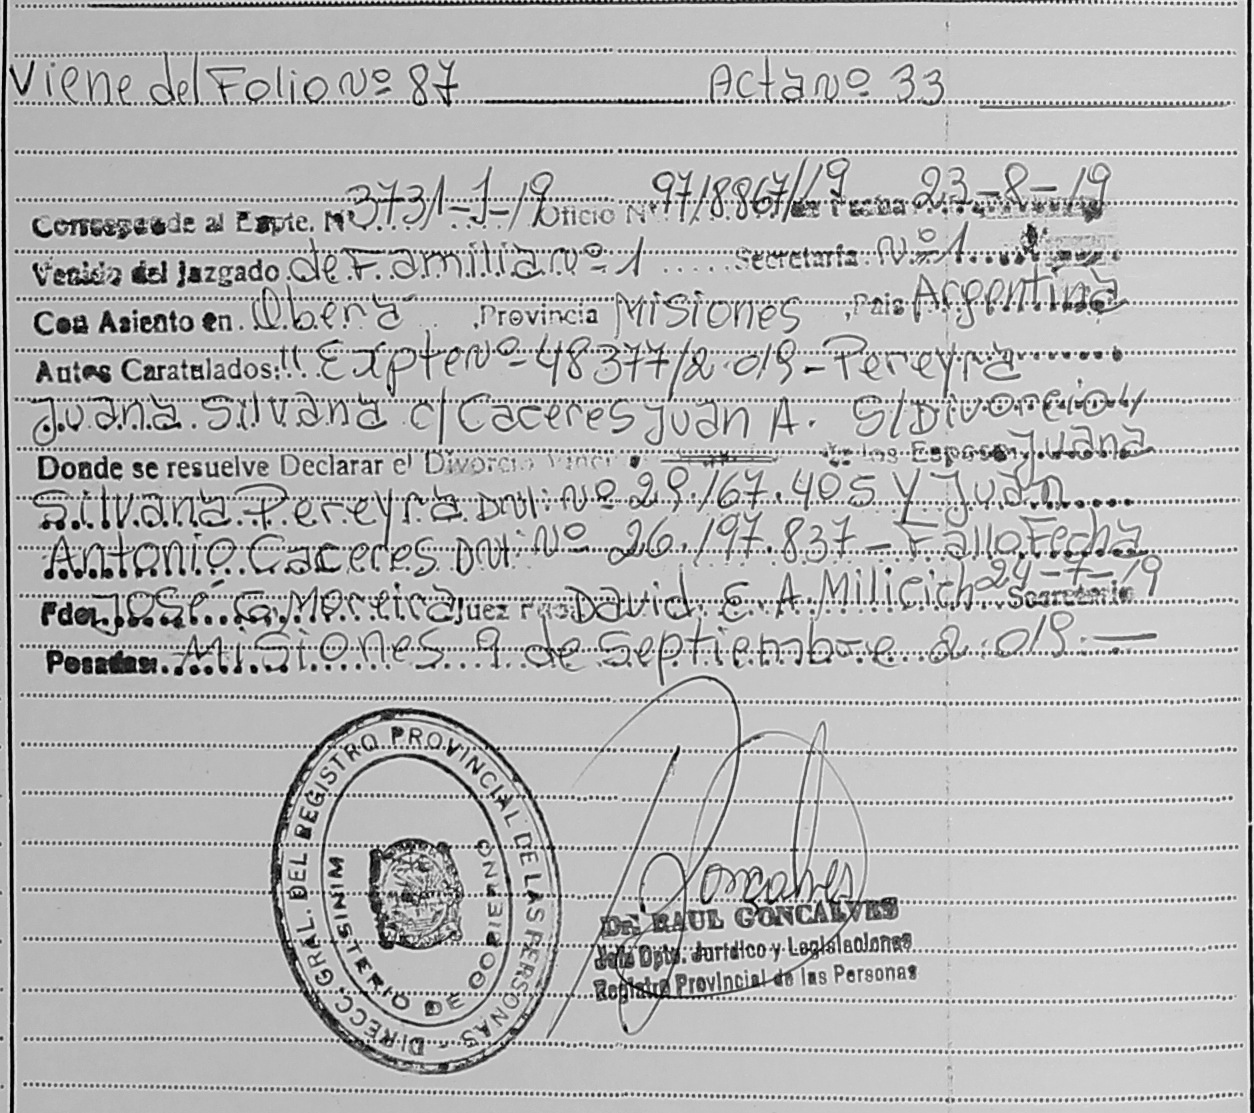 Viene del Folio Nº 87 Acta nº 33
Corresponde al Expte. Nº 3731-J-19 Oficio Nº 97/8867/19 de Fecha 23-8-19
Venido del Juzgado de Familia Nº 1 Secretaría Nº 1
Con Asiento en Oberá, Provincia Misiones, País Argentina
Autos Caratulados: "Expte Nº 48377/2.019 - Pereyra
Juana Silvana c/ Caceres Juan A. S/ Divorcio"
Donde se resuelve Declarar el Divorcio de los Esposos Juana
Silvana Pereyra DNI: Nº 29.167.405 y Juan
Antonio Caceres DNI: Nº 26.197.837 - Fallo Fecha
24-7-19
Fdo. José G. Moreira Juez Fdo. David E. A. Milicich Secretario
Posadas: Misiones 9 de Septiembre 2.019.
DIRECC. GRAL. DEL REGISTRO PROVINCIAL DE LAS PERSONAS
MINISTERIO DE GOBIERNO
Goncalves
Dr. RAUL GONCALVES
Jefe Dpto. Jurídico y Legislaciones
Registro Provincial de las Personas